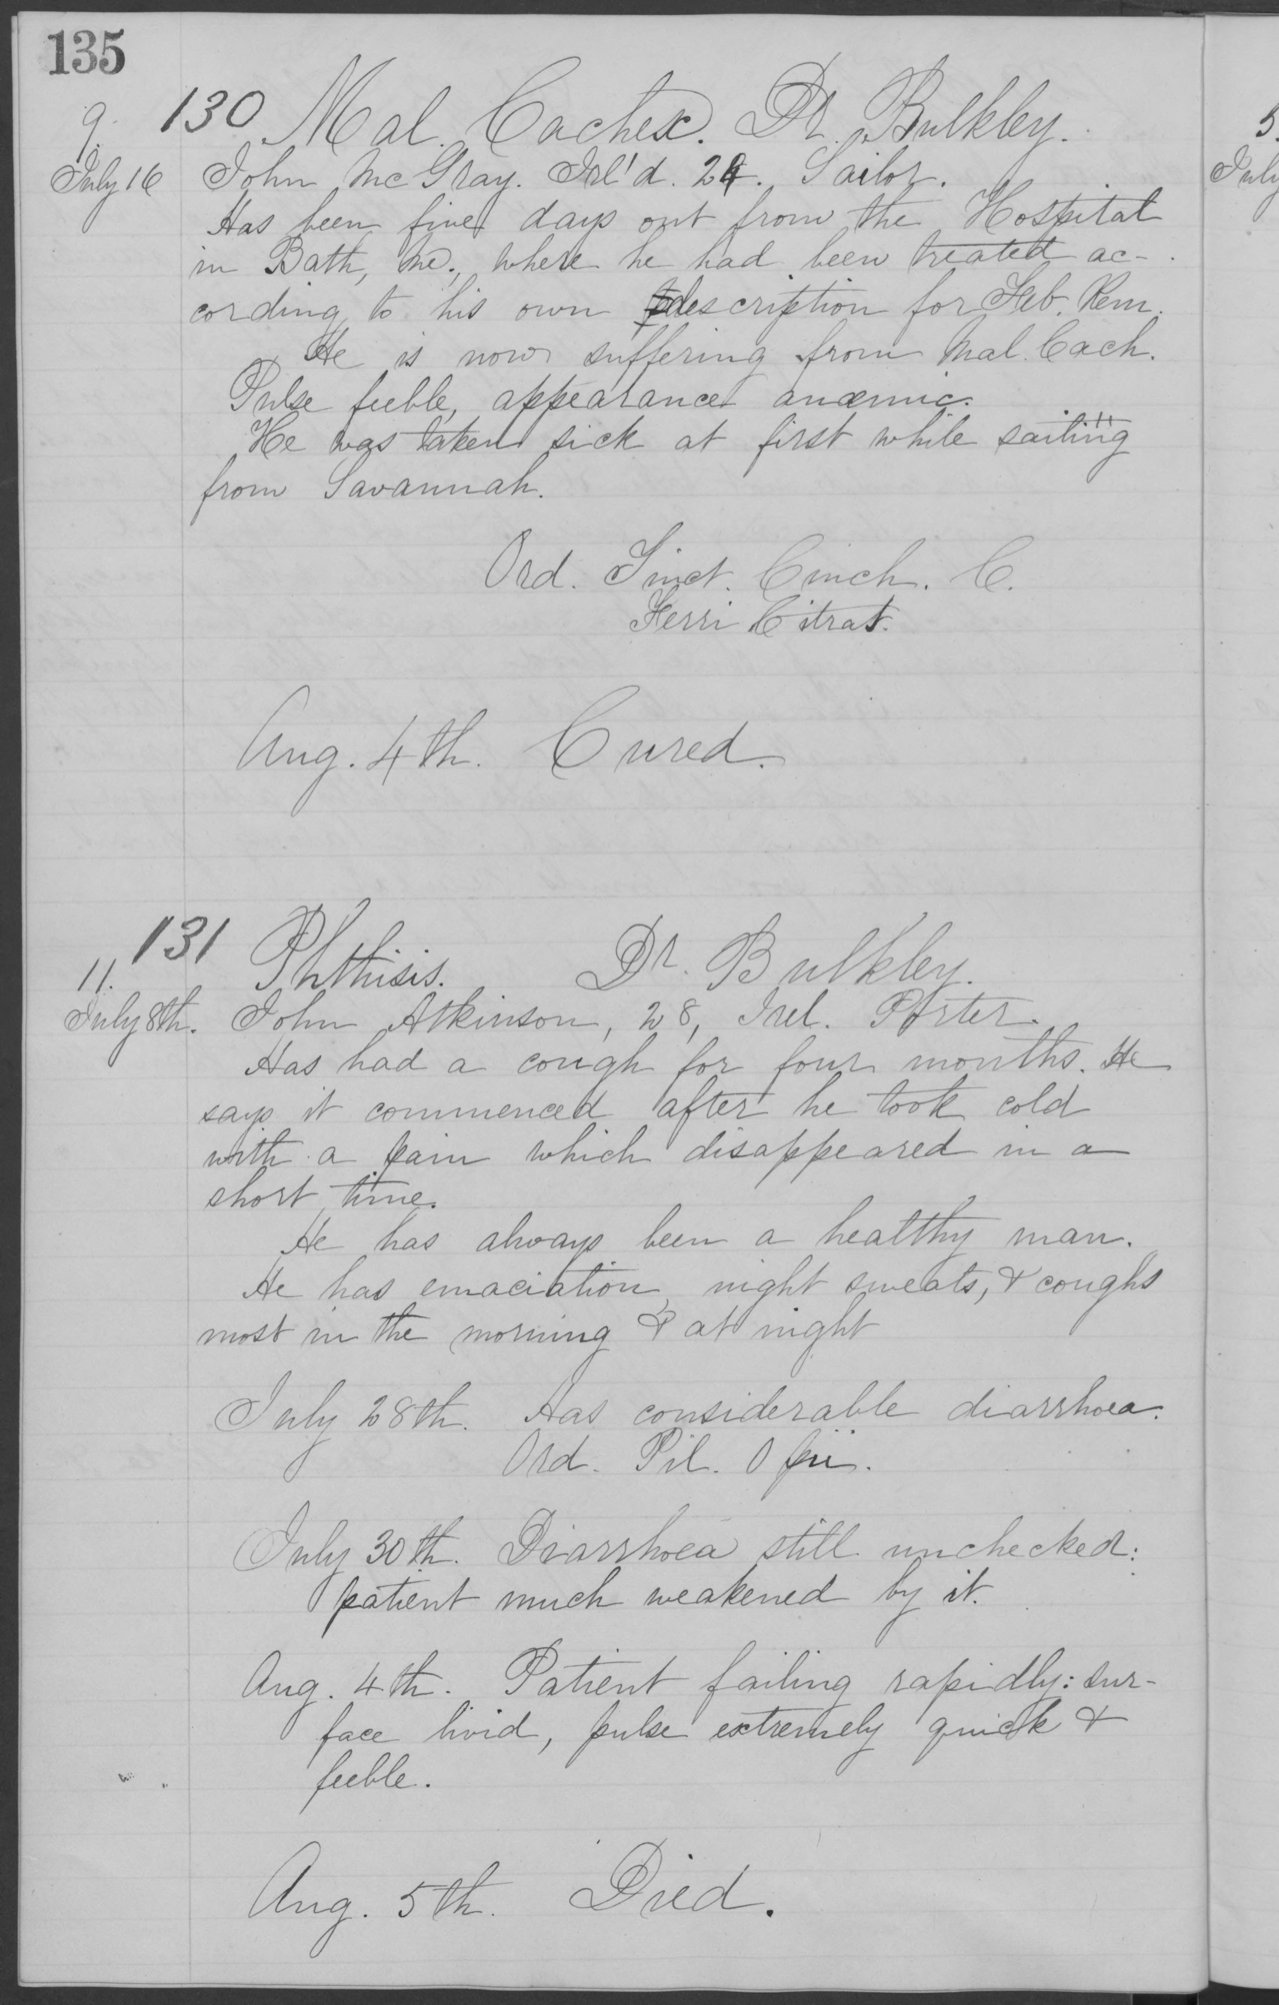 135
130 Mal. Cachex. Dr. Bulkley.
9.
July 16 John McGray. Irl'd. 24. Sailor.
Has been five days out from the Hospital
in Bath, Me., where he had been treated ac-
cording to his own description for Feb. Rem.
He is now suffering from Mal. Cach.
Pulse feeble, appearance anæmic.
He was taken sick at first while sailing
from Savannah.
Ord. Tinct. Cinch. C.
Ferri Citrat.
Aug. 4th. Cured.
131 Phthisis. Dr. Bulkley.
11.
July 8th. John Atkinson, 28, Irel. Porter.
Has had a cough for four months. He
says it commenced after he took cold
with a pain which disappeared in a
short time.
He has always been a healthy man.
He has emaciation, night sweats, & coughs
most in the morning & at night
July 28th. Has considerable diarrhoea.
Ord. Pil. Opii.
July 30th. Diarrhoea still unchecked:
patient much weakened by it.
Aug. 4th. Patient failing rapidly: sur-
face livid, pulse extremely quick &
feeble.
Aug. 5th. Died.
5
July